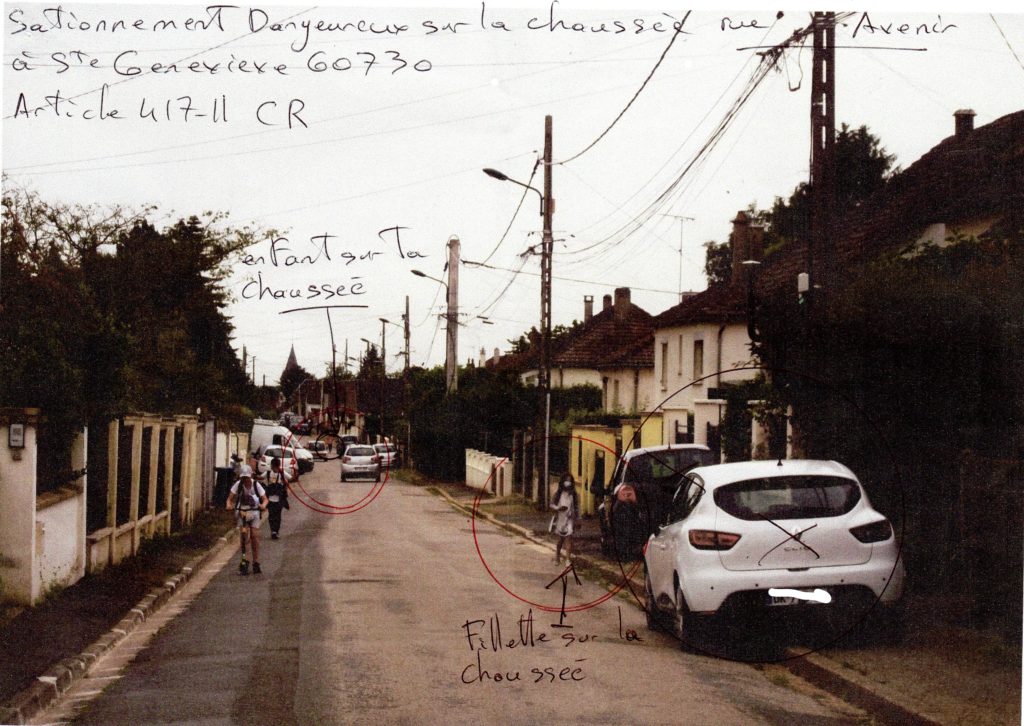 Sationnement Dangeureux sur la chausseé rue Avenir
à Ste Genevieve 60730
Article 417-11 CR
enfant sur la
chausseé
Fillette sur la
chausseé
CLIO